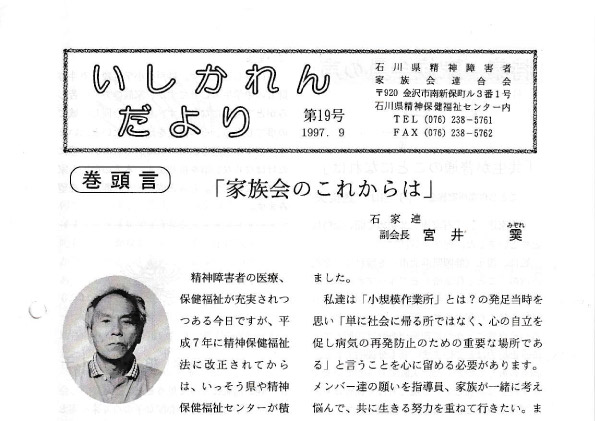 いしかれん
だより
第19号
1997.9
石川県精神障害者
家族会連合会
〒920 金沢市南新保町ル3番1号
石川県精神保健福祉センター内
TEL (076) 238−5761
FAX (076) 238−5762
巻頭言
「家族会のこれからは」
石家連
副会長 宮井
みぞれ
精神障害者の医療、
保健福祉が充実されつ
つある今日ですが、平
成7年に精神保健福祉
法に改正されてから
は、いっそう県や精神
保健福祉センターが積
ました。
私達は「小規模作業所」とは?の発足当時を
思い「単に社会に帰る所ではなく、心の自立を
促し病気の再発防止のための重要な場所であ
る」と言うことを心に留める必要があります。
メンバー達の願いを指導員、家族が一緒に考え
悩んで、共に生きる努力を重ねて行きたい。ま